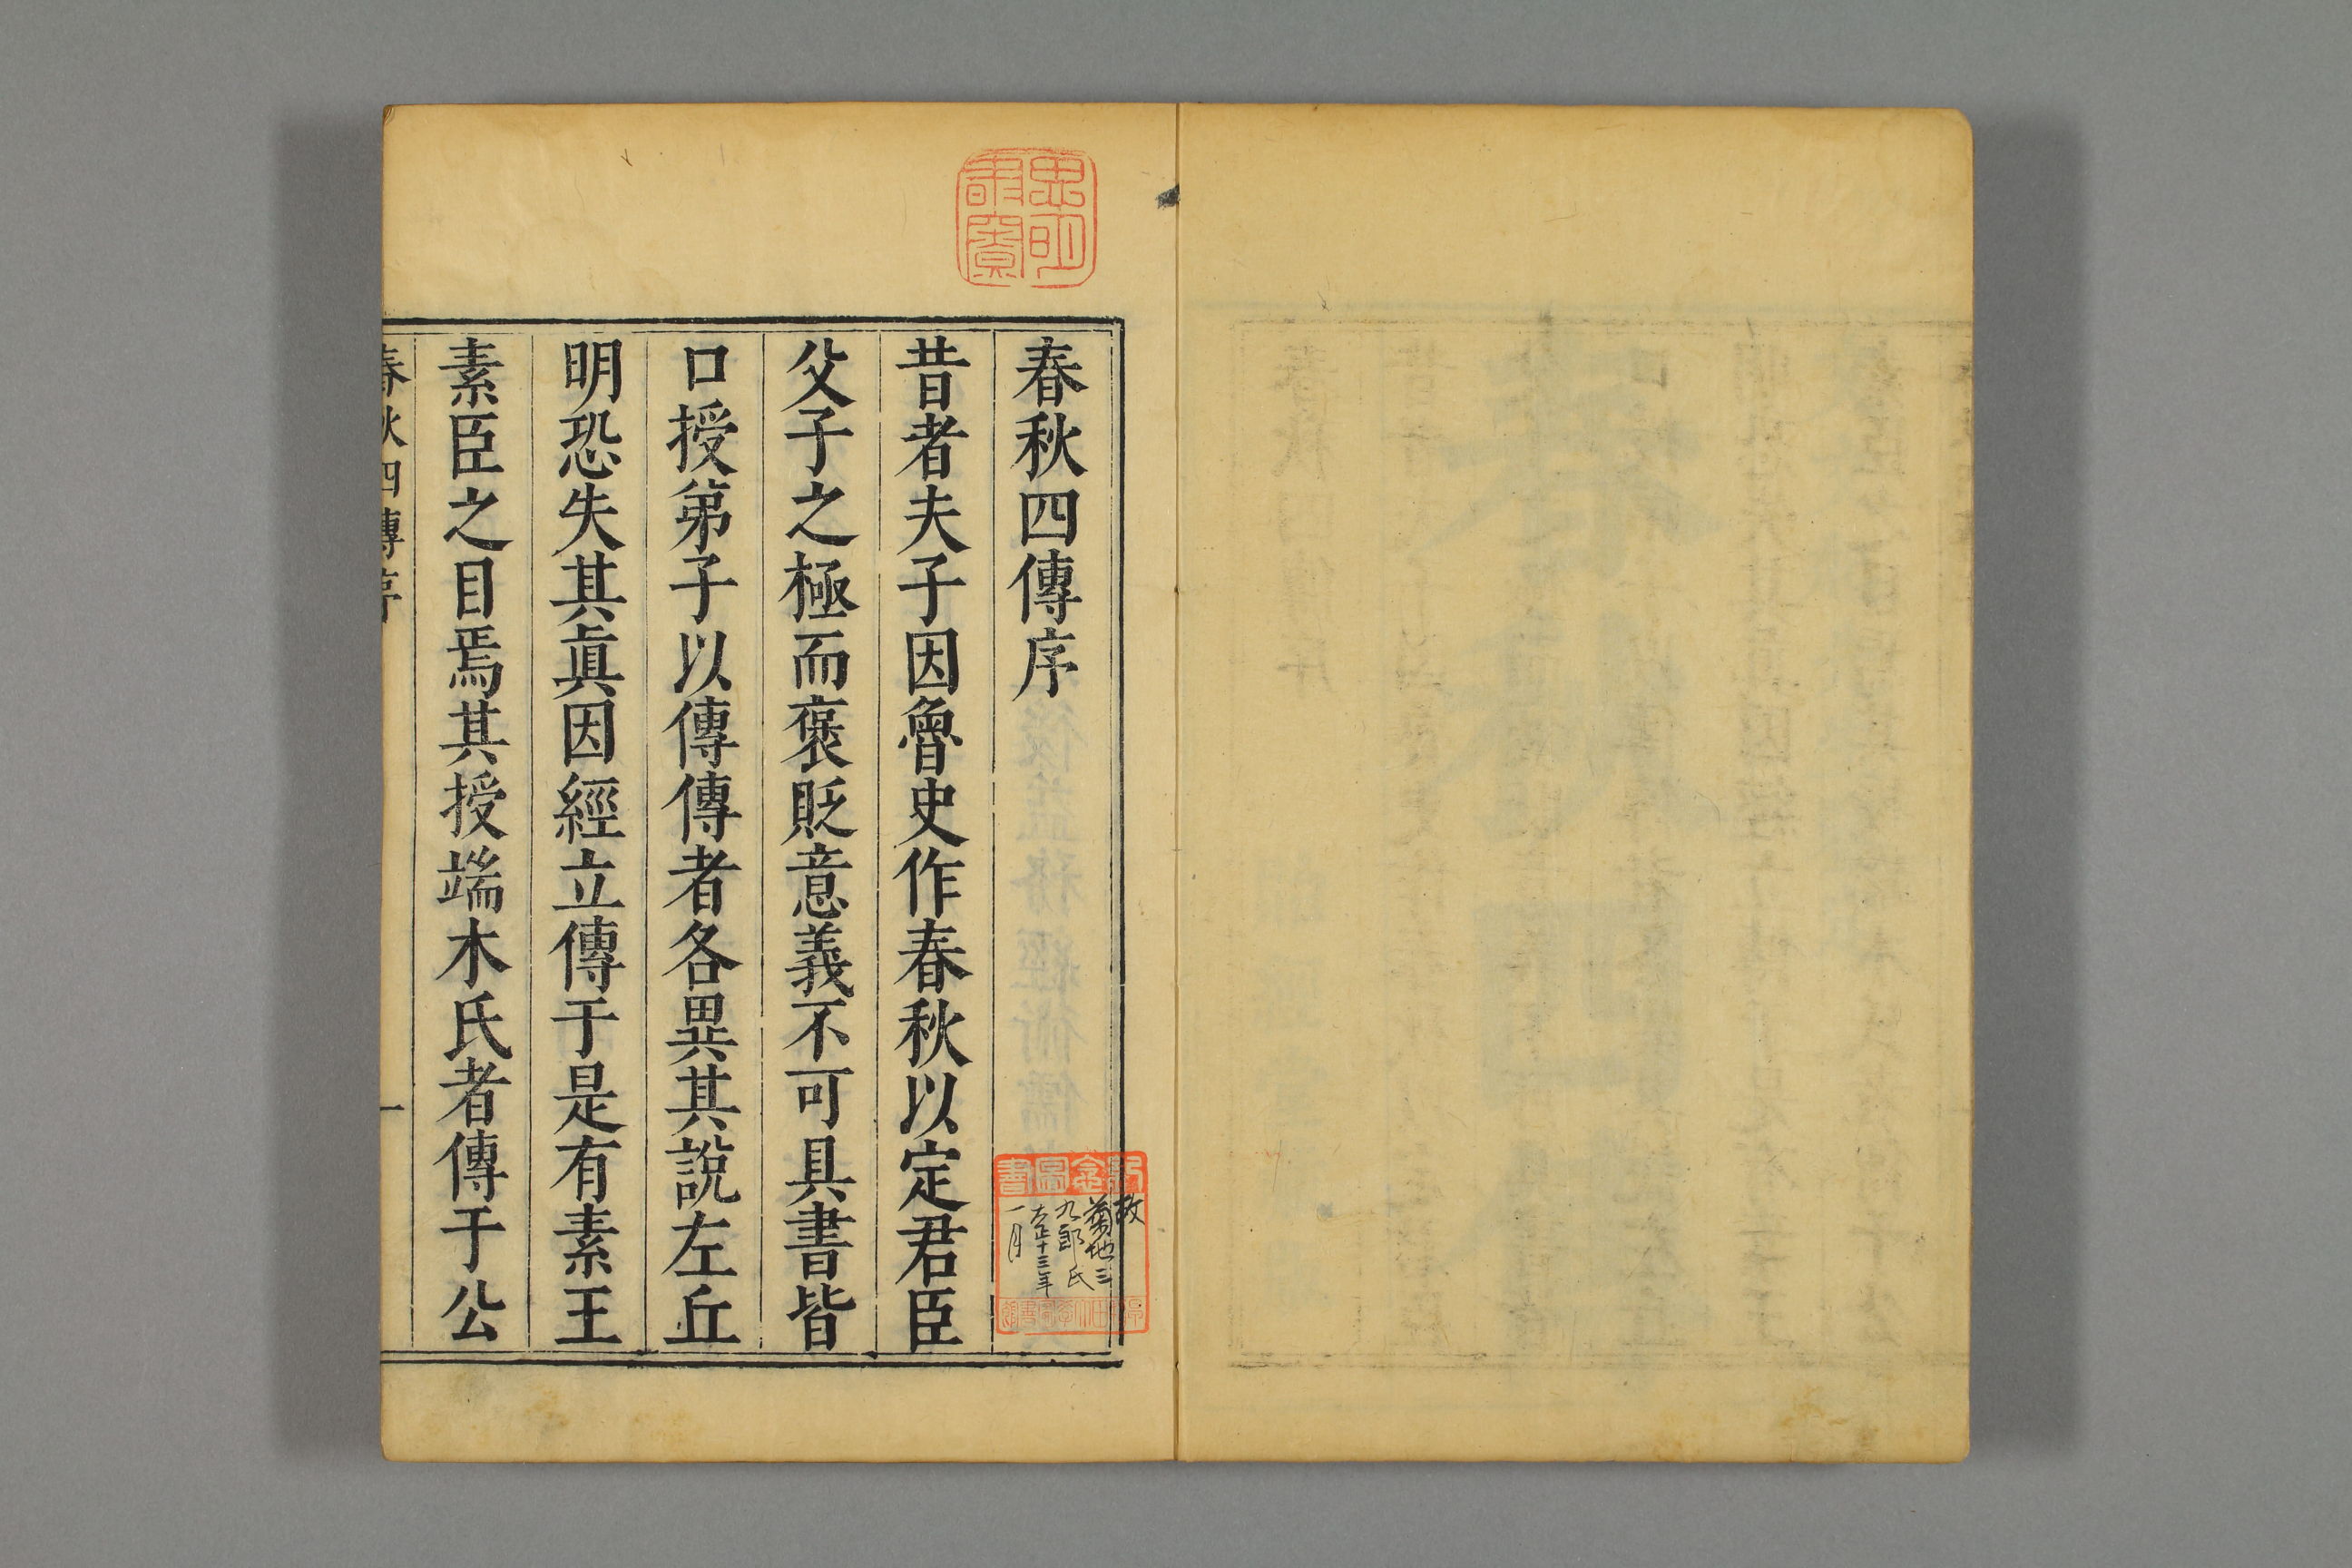 春秋四傳序
昔者夫子因魯史作春秋以定君臣
父子之極而褒貶意義不可具書皆
口授弟子以傳傳者各異其說左丘
明恐失其眞因經立傳于是有素王
素臣之目焉其授端木氏者傳于公
春秋四傳序
一
故
菊地三
九郎氏
大正十三年
一月